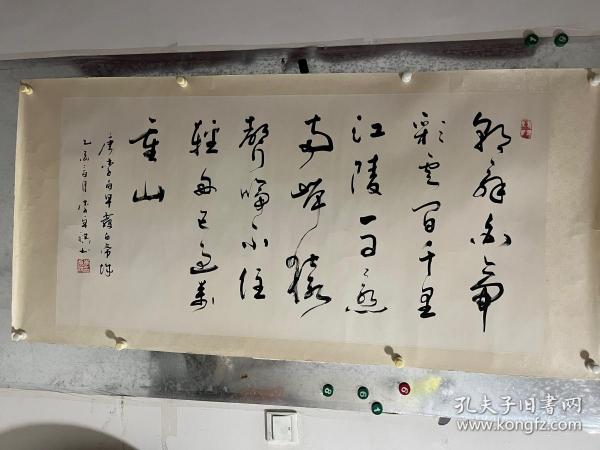 朝辞白帝
彩雲间千里
江陵一日还
两岸猿
聲啼不住
輕舟已過萬
重山
唐李白早發白帝城
乙亥
孔夫子旧书网
www.kongfz.com